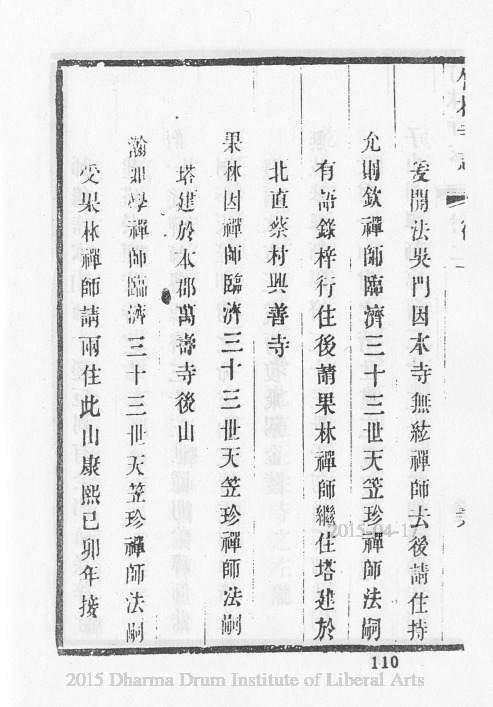 後
爰開法吳門因本寺無紘禪師去後請住持
允則欽禪師臨濟三十三世天笠珍禪師法嗣
有語錄梓行住後請果林禪師繼住塔建於
北直蔡村興善寺
果林因禪師臨濟三十三世天笠珍禪師法嗣
塔建於本郡萬壽寺後山
瀚如學禪師臨濟三十三世天笠珍禪師法嗣
受果林禪師請兩住此山康熙己卯年接
110
2015-04-17
2015 Dharma Drum Institute of Liberal Arts